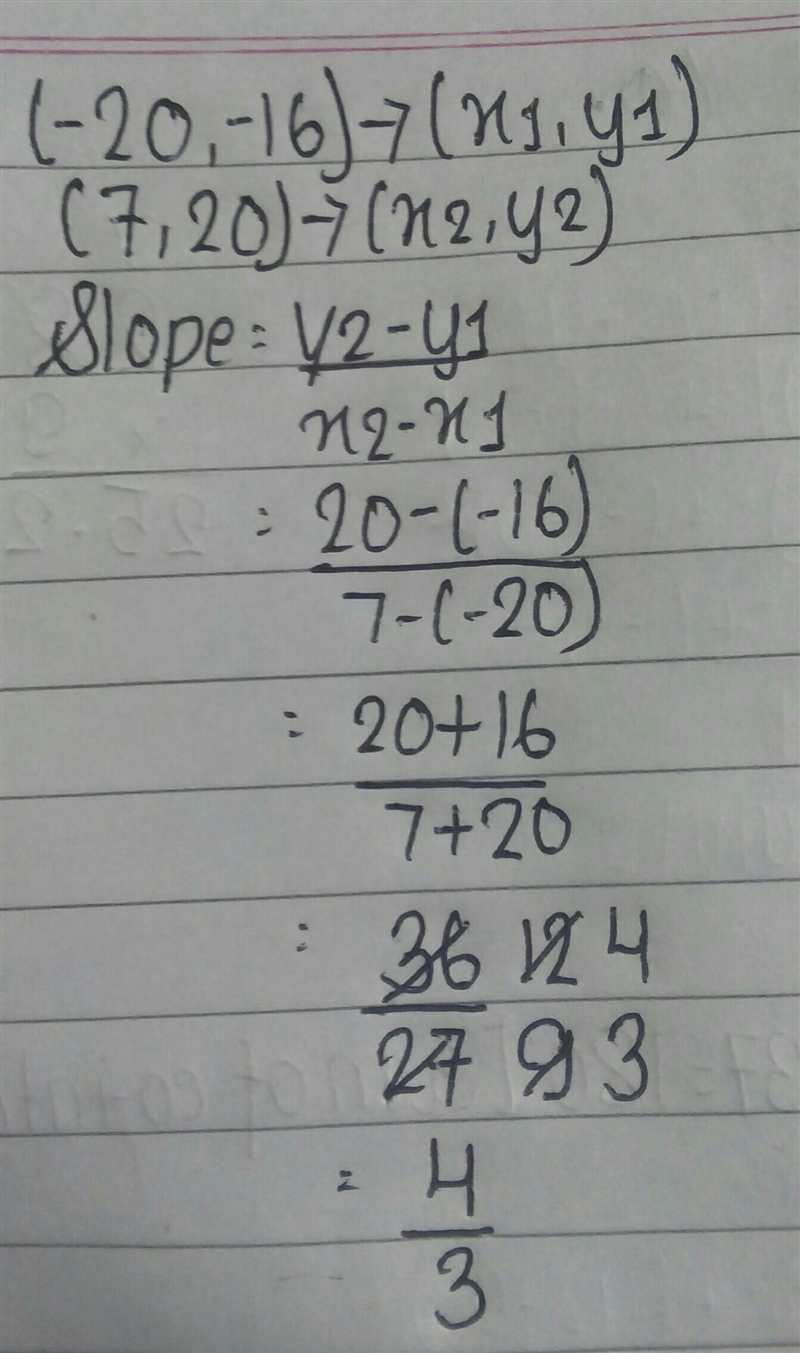 (-20,-16)→(x1,y1)
(7,20)→(x2,y2)
Slope = y2-y1
x2-x1
= 20-(-16)
7-(-20)
= 20+16
7+20
= 36 12 4
27 9 3
= 4
3